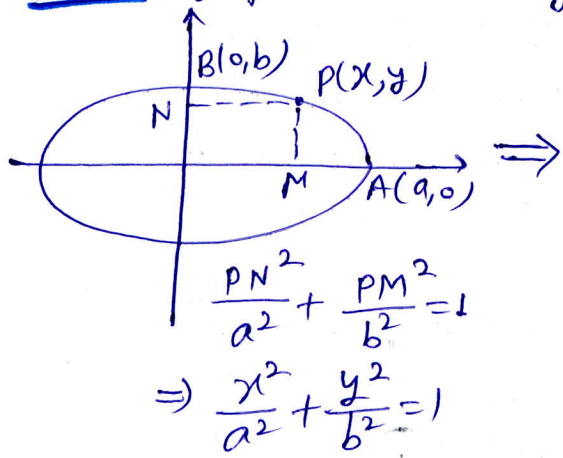 B(0,b)
P(x,y)
N
⇒
M
A(a,0)
PN²/a² + PM²/b² = 1
⇒ x²/a² + y²/b² = 1